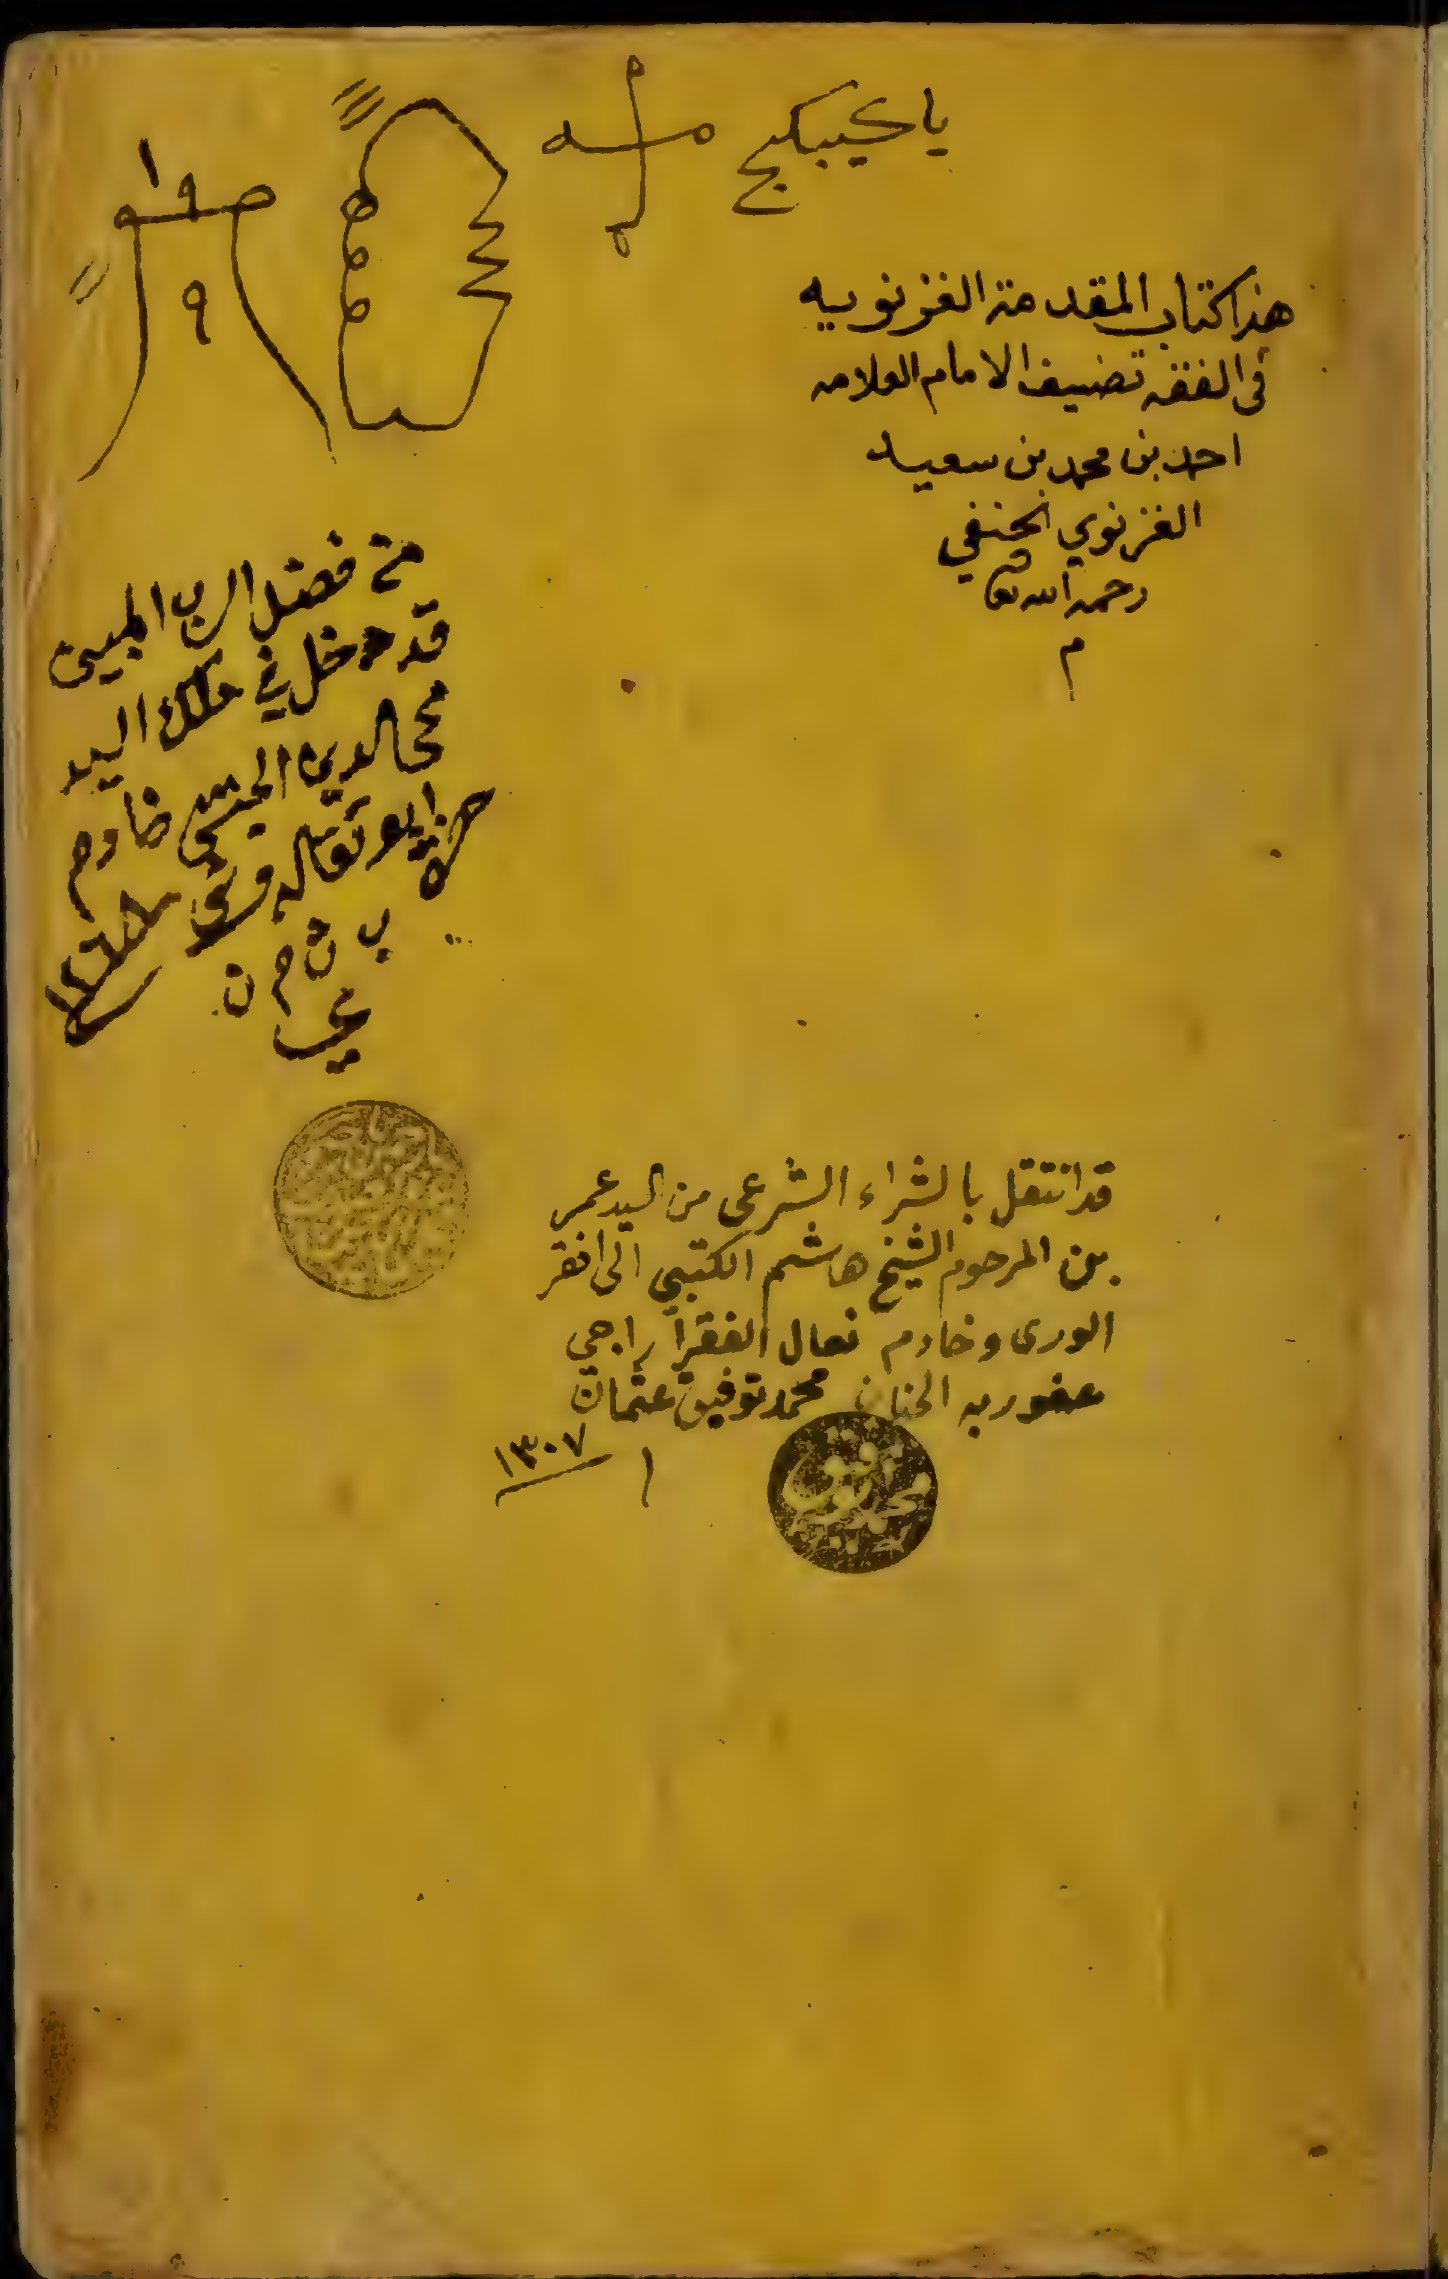 يا كيبكج
هذا كتاب المقدمة الغزنويه
في الفقه تصنيف الامام العلامه
احمد بن محمد بن سعيد
الغزنوي الحنفي
رحمه الله تعا
م
١
٩
من فضل الرب المبين
قد دخل في ملك اليد
محي الدين الحسني خادم
قد انتقل بالشراء الشرعى من السيد عمر
بن المرحوم الشيخ هاشم الكتبي الى افقر
الورى وخادم نعال الفقرآ راجي
عفو ربه الحنان محمد توفيق عثمان
١٣٠٧
محمد توفيق